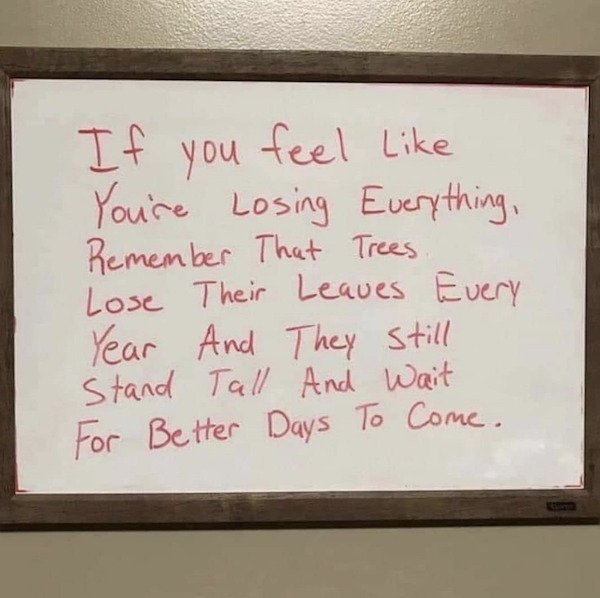 If you feel Like
You're Losing Everything,
Remember That Trees
Lose Their Leaves Every
Year And They Still
Stand Tall And Wait
For Better Days To Come.